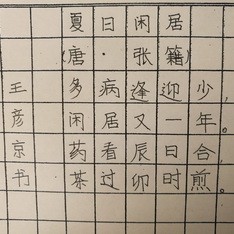 夏日闲居
(唐·张籍)
多病逢迎少，
闲居又一年。
药看辰日合，
茶过卯时煎。
王彦京书